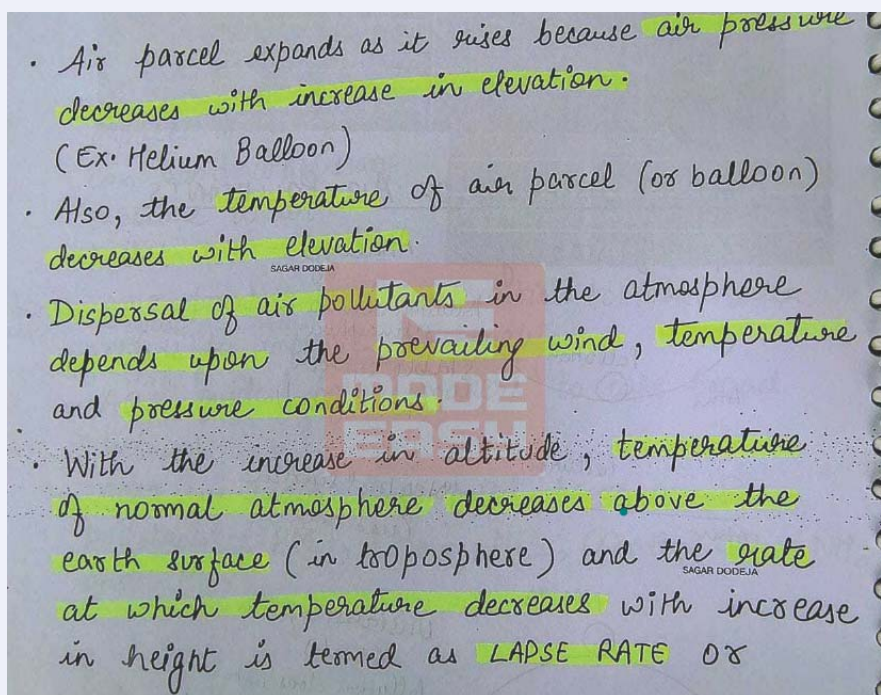 • Air parcel expands as it rises because air pressure
decreases with increase in elevation.
(Ex. Helium Balloon)
• Also, the temperature of air parcel (or balloon)
decreases with elevation.
SAGAR DODEJA
• Dispersal of air pollutants in the atmosphere
depends upon the prevailing wind, temperature
and pressure conditions.
MADE
EASY
• With the increase in altitude, temperature
of normal atmosphere decreases above the
earth surface (in troposphere) and the rate
SAGAR DODEJA
at which temperature decreases with increase
in height is termed as LAPSE RATE or